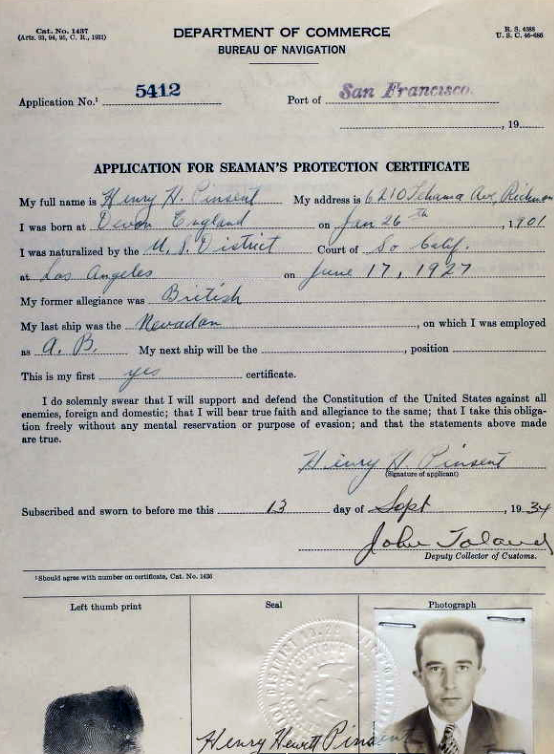 Cat. No. 1437
(Arts. 93, 94, 95, C. R., 1931)
DEPARTMENT OF COMMERCE
BUREAU OF NAVIGATION
R. S. 4588
U. S. C. 46-686
Application No.¹ 5412 Port of San Francisco.
, 19
APPLICATION FOR SEAMAN'S PROTECTION CERTIFICATE
My full name is Henry H. Pinsent My address is 6210 Tehama Ave, Richmon
I was born at Devon England on Jan 26th, 1901
I was naturalized by the U. S. District Court of So Calif.
at Los Angeles on June 17, 1927
My former allegiance was British
My last ship was the Nevadan, on which I was employed
as A. B. My next ship will be the , position
This is my first yes certificate.
I do solemnly swear that I will support and defend the Constitution of the United States against all
enemies, foreign and domestic; that I will bear true faith and allegiance to the same; that I take this obliga-
tion freely without any mental reservation or purpose of evasion; and that the statements above made
are true.
Henry H. Pinsent
(Signature of applicant)
Subscribed and sworn to before me this 13 day of Sept, 1934
John Toland
Deputy Collector of Customs.
¹ Should agree with number on certificate, Cat. No. 1436
Left thumb print Seal Photograph
Henry Hewitt Pinsent